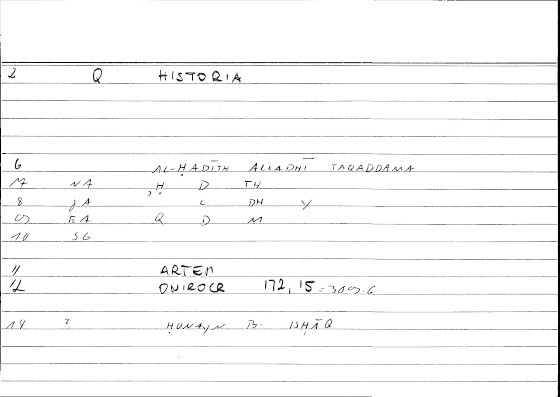 2 Q HISTORIA
6 AL-ḤADĪTH ALLADHĪ TAQADDAMA
7 NA ,Ḥ D TH
8 JA L DH Y
9 EA Q D M
10 SG
11 ARTEM
12 ONIROCR 172, 15 = 309.6
14 ? ḤUNAYN B. ISḤĀQ